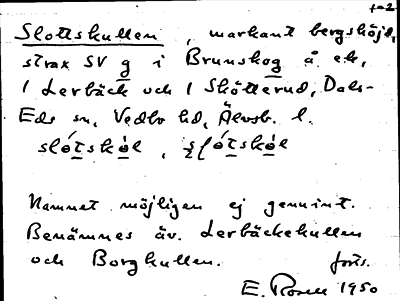 1-2
Slottskullen, markant bergshöjd,
strax SV g i Brunskog å ek,
1 Lerbäck och 1 Skötterud, Dals-
Eds sn, Vedbo hd, Älvsb. l.
Namnet möjligen ej genuint.
Benämnes äv. Lerbäckekullen
och Borgkullen. forts.
E. Rosell 1950